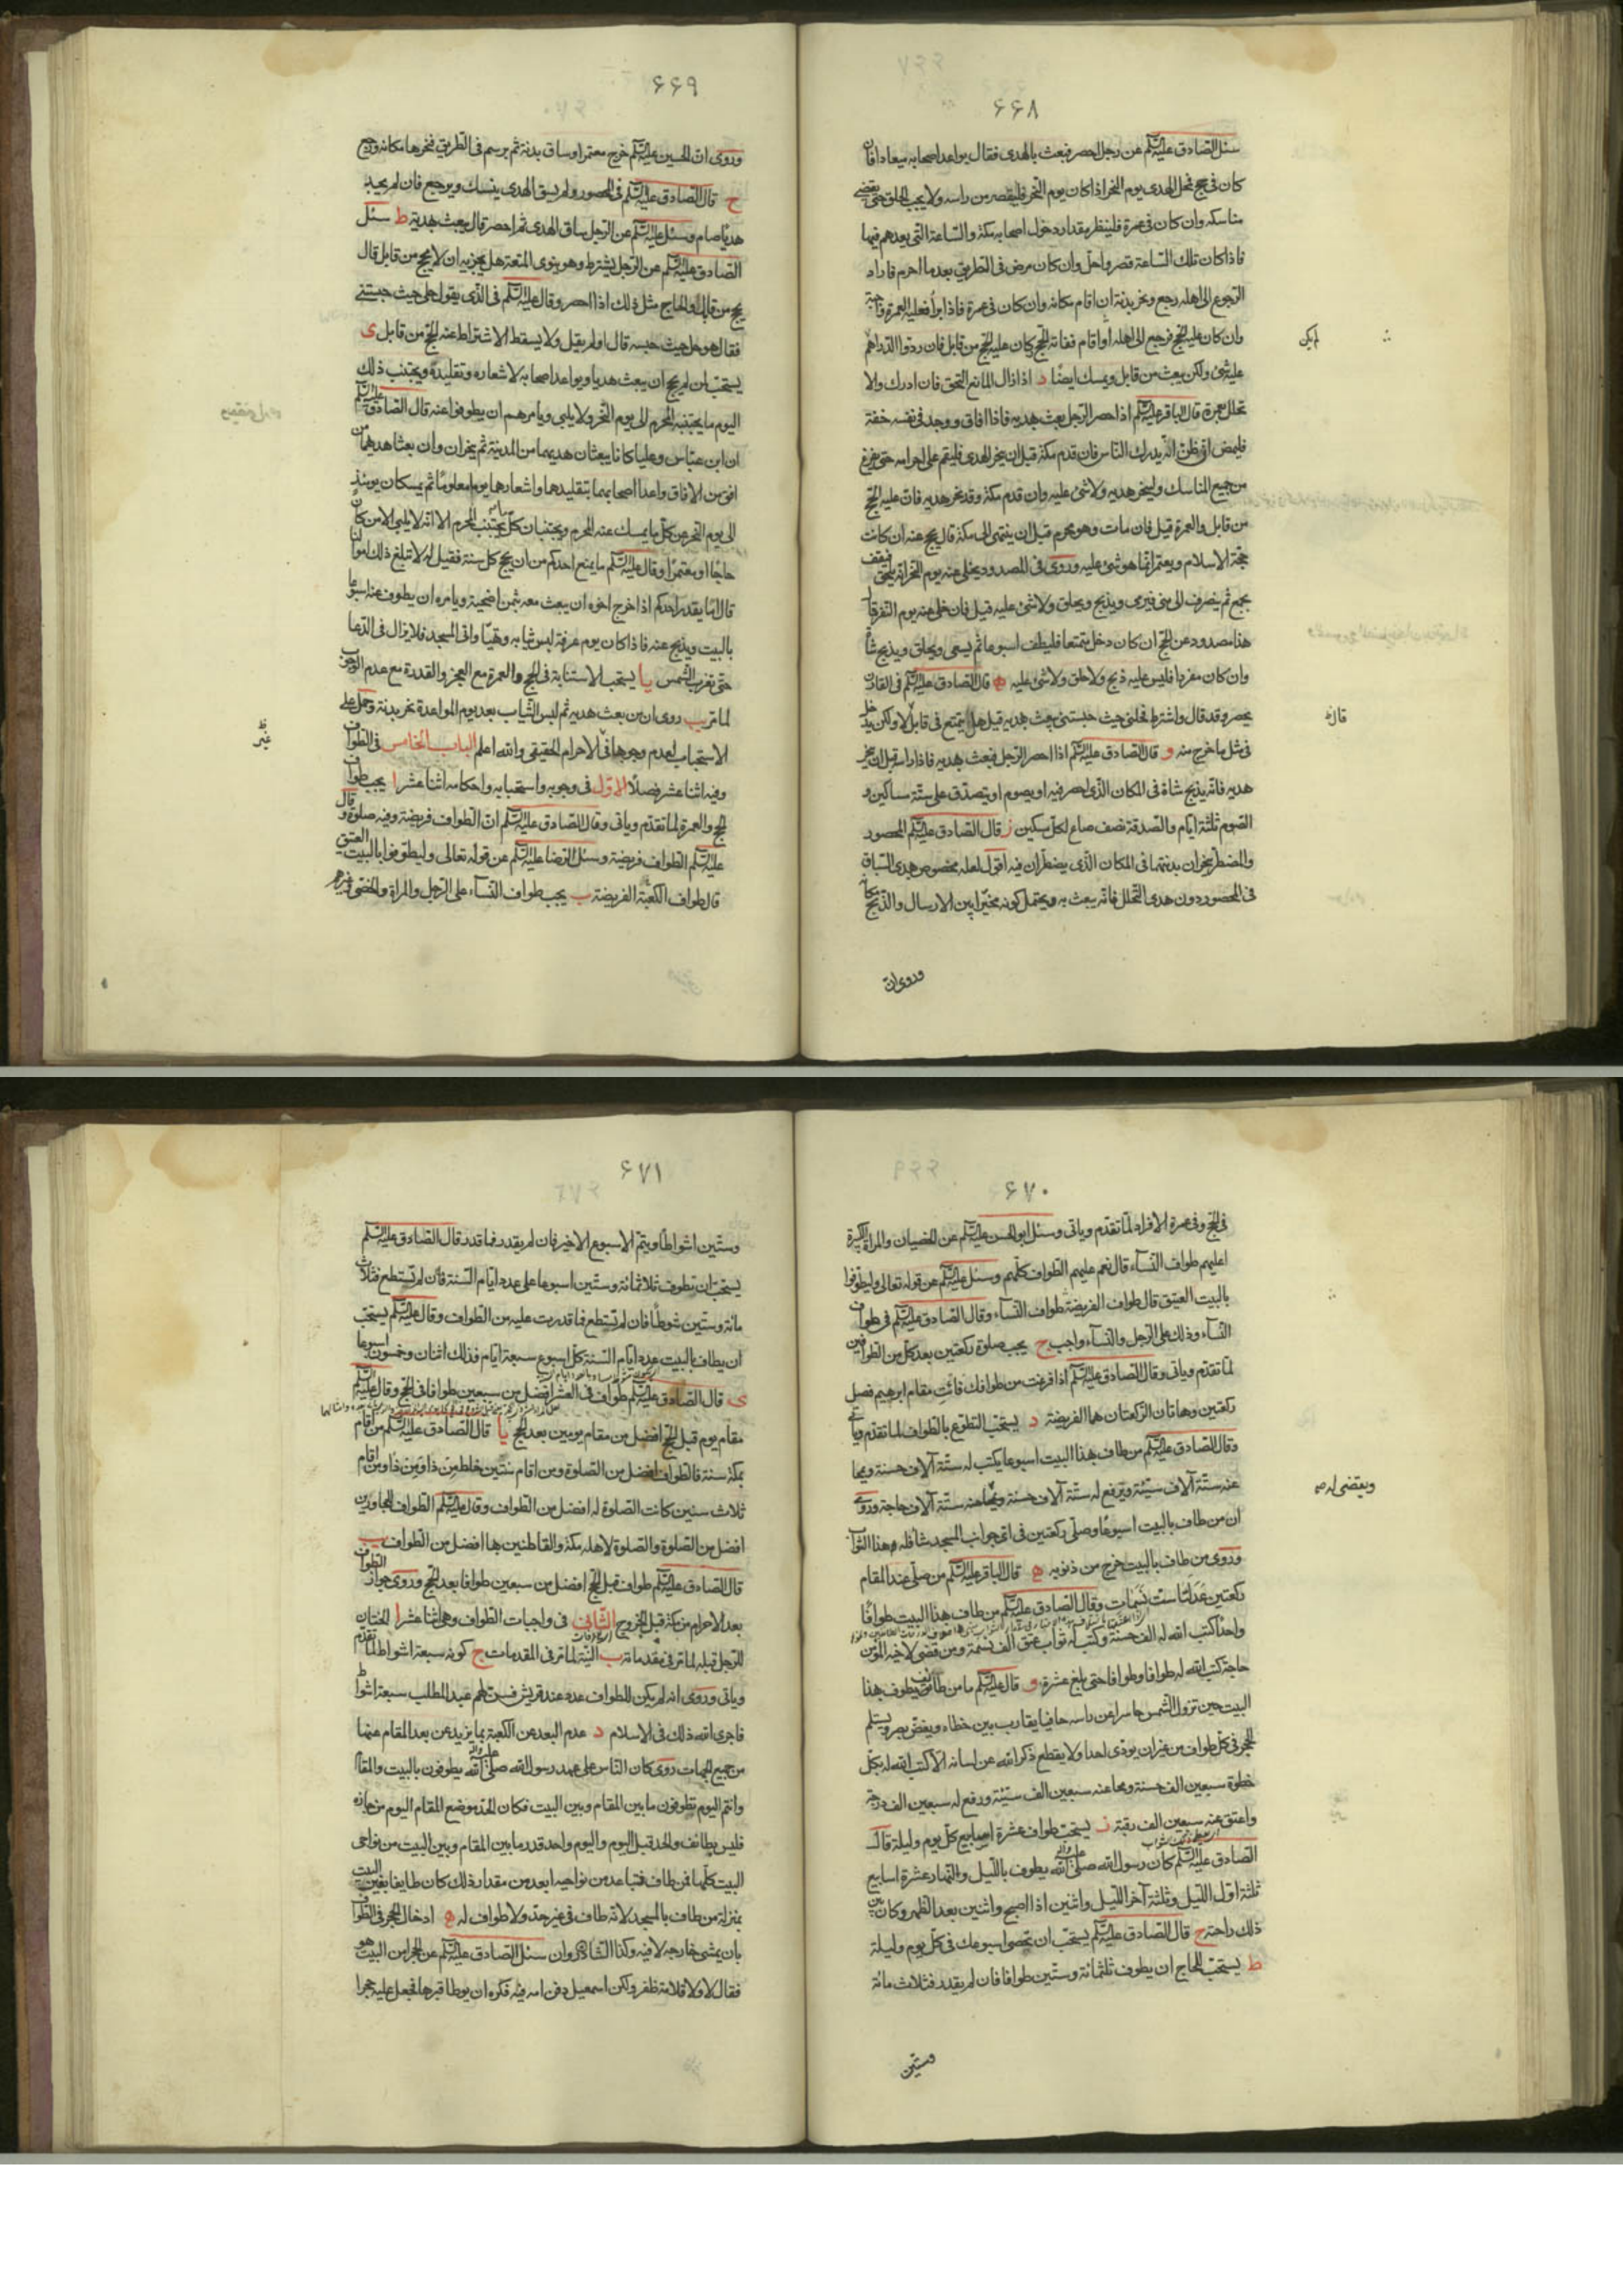 ۶۶۸
سئل الصادق عليه السلم عن رجل احصر فبعث بالهدى فقال يواعد اصحابه ميعادا فان
كان فى حج فمحل الهدى يوم النحر اذا كان يوم النحر فليقصر من راسه ولا يجب الحلق حتى يقضى
مناسكه وان كان فى عمرة فلينظر مقدار دخول اصحابه مكة والساعة التى يعدهم فيها
فاذا كان تلك الساعة قصر واحل وان كان مرض فى الطريق بعد ما احرم فاراد
الرجوع الى اهله رجع ونحر بدنة ان اقام مكانه وان كان فى عمرة فاذا برأ فعليه العمرة واجبة
وان كان عليه الحج فرجع الى اهله او اقام ففاته الحج كان عليه الحج من قابل فان ردوا الدراهم
لم يكن
عليه شئ ولكن يبعث من قابل ويمسك ايضا د اذا زال المانع التحق فان ادرك والا
تحلل بعمرة قال الباقر عليه السلم اذا احصر الرجل بعث بهديه فاذا افاق ووجد فى نفسه خفة
فليمض ان ظن انه يدرك الناس فان قدم مكة قبل ان ينحر الهدى فليقم على احرامه حتى يفرغ
من جميع المناسك ولينحر هديه ولا شئ عليه وان قدم مكة وقد نحر هديه فان عليه الحج
من قابل والعمرة قيل فان مات وهو محرم قبل ان ينتهى الى مكة قال يحج عنه ان كانت
حجة الاسلام ويعتمر انما هو شئ عليه وروى فى المصدود يخلى عنه يوم النحر انه يلحق فيقف
بجمع ثم ينصرف الى منى فيرمى ويذبح ويحلق ولا شئ عليه قيل فان خلى عنه يوم النفر قال
هذا مصدود عن الحج ان كان دخل متمتعا فليطف اسبوعا ثم يسعى ويحلق ويذبح شاة
وان كان مفردا فليس عليه ذبح ولا حلق ولا شئ عليه ه قال الصادق عليه السلم فى القارن
يحصر وقد قال واشترط فحلنى حيث حبستنى يبعث بهديه قيل هل يتمتع فى قابل لا ولكن يدخل
قال
فى مثل ما خرج منه و قال الصادق عليه السلم اذا احصر الرجل فبعث بهديه فاذاه راسه قبل ان ينحر
هديه فانه يذبح شاة فى المكان الذى احصر فيه او يصوم او يتصدق على ستة مساكين و
الصوم ثلثة ايام والصدقة نصف صاع لكل مسكين ز قال الصادق عليه السلم المحصور
والمضطر ينحران بدنتهما فى المكان الذى يضطران فيه اقول لعله مخصوص بهدى السياق
فى المحصور دون هدى التحلل فانه يبعث به ويحتمل كونه مخيرا بين الارسال والذبح مكانه
وروى ان
۶۶۹
وروى ان الحسين عليه السلم خرج معتمرا وساق بدنة ثم برسم فى الطريق فنحرها مكانه ورجع
ح قال الصادق عليه السلم فى المحصور ولم يسق الهدى ينسك ويرجع فان لم يجد
هديا صام وسئل عليه السلم عن الرجل ساق الهدى ثم احصر قال يبعث بهديه ط سئل
الصادق عليه السلم عن الرجل يشترط وهو ينوى المتعة هل يجزيه ان لا يحج من قابل قال
يحج من قابل والحاج مثل ذلك اذا احصر وقال عليه السلم فى الذى يقول حلى حيث حبستنى
فقال هو حل حيث حبسه قال او لم يقل ولا يسقط الاشتراط عنه الحج من قابل ى
يستحب لمن لم يحج ان يبعث هديا ويواعد اصحابه لاشعاره وتقليده ويجتنب ذلك
اليوم ما يجتنبه المحرم الى يوم النحر ولا يلبى ويامرهم ان يطوفوا عنه قال الصادق عليه السلم
ان ابن عباس وعليا كانا يبعثان هديهما من المدينة ثم يتجردان وان بعثا بهديهما من
افق من الافاق واعدا اصحابهما بتقليدهما واشعارهما يوما معلوما ثم يمسكان يومئذ
الى يوم النحر عن كل ما يمسك عنه المحرم ويجتنبان كل ما يجتنب المحرم الا انه لا يلبى الا من كان
حاجا او معتمرا وقال عليه السلم ما يمنع احدكم من ان يحج كل سنة فقيل له لا تبلغ ذلك اموالنا
قال اما يقدر احدكم اذا خرج اخوه ان يبعث معه بثمن اضحية ويامره ان يطوف عنه اسبوعا
بالبيت ويذبح عنه فاذا كان يوم عرفة لبس ثيابه وتهيأ واتى المسجد فلا يزال فى الدعا
حتى تغرب الشمس يا يستحب الاستنابة فى الحج والعمرة مع العجز والقدرة مع عدم الوجوب
لما مر يب روى ان من بعث هديه ثم لبس الثياب بعد يوم المواعدة نحر بدنة وحمل على
غير ظ
الاستحباب لعدم وجوبها فى الاحرام الحقيقى والله اعلم الباب الخامس فى الطواف
وفيه اثنا عشر فصلا الاول فى وجوبه واستحبابه واحكامه اثنا عشر ا يجب طواف
الحج والعمرة لما تقدم وياتى وقال الصادق عليه السلم ان الطواف فريضة وفيه صلوة وقال
عليه السلم الطواف فريضة وسئل الرضا عليه السلم عن قوله تعالى وليطوفوا بالبيت العتيق
قال طواف الكعبة الفريضة ب يجب طواف النساء على الرجل والمراة والخصى وغيرهم
۶۷۰
فى الحج وفى عمرة الافراد لما تقدم وياتى وسئل ابو الحسن عليه السلم عن الخصيان والمراة الكبيرة
اعليهم طواف النساء قال نعم عليهم الطواف كلهم وسئل عليه السلم عن قوله تعالى وليطوفوا
بالبيت العتيق قال طواف الفريضة طواف النساء وقال الصادق عليه السلم فى طواف
النساء وذلك على الرجل والنساء واجب ح يجب صلوة ركعتين بعد كل من الطوافين
لما تقدم وياتى وقال الصادق عليه السلم اذا فرغت من طوافك فائت مقام ابرهيم فصل
ركعتين وهاتان الركعتان هما الفريضة د يستحب التطوع بالطواف لما تقدم وياتى
وقال الصادق عليه السلم من طاف بهذا البيت اسبوعا يكتب له ستة آلاف حسنة ويمحا
عنه ستة آلاف سيئة ويرفع له ستة آلاف حسنة ويمحا عنه ستة آلاف حاجة وروى
ويقضى له صح
ان من طاف بالبيت اسبوعا وصلى ركعتين فى اى جوانب المسجد شا فله هذا الثواب
وروى من طاف بالبيت خرج من ذنوبه ه قال الباقر عليه السلم من صلى عند المقام
ركعتين عدلتا ست نسمات وقال الصادق عليه السلم من طاف بهذا البيت طوافا
واحدا كتب الله له الف حسنة وكتب له ثواب عتق الف نسمة ومن قضى لاخيه المؤمن
حاجة كتب الله له طوافا وطوافا حتى بلغ عشرة و قال عليه السلم ما من طائف يطوف بهذا
البيت حين تزول الشمس حاسرا عن راسه حافيا يقارب بين خطاه ويغض بصره ويستلم
الحجر فى كل طواف من غير ان يوذى احدا ولا يقطع ذكر الله عن لسانه الا كتب الله له بكل
خطوة سبعين الف حسنة ومحا عنه سبعين الف سيئة ورفع له سبعين الف درجة
واعتق عنه سبعين الف رقبة ز يستحب طواف عشرة اسابيع كل يوم وليلة قال
الصادق عليه السلم كان رسول الله صلى الله عليه وآله يطوف بالليل والنهار عشرة اسابيع
ثلثة اول الليل وثلثة آخر الليل واثنين اذا اصبح واثنين بعد الظهر وكان بين
ذلك راحته ح قال الصادق عليه السلم يستحب ان تحصى اسبوعك فى كل يوم وليلة
ط يستحب للحاج ان يطوف ثلثمائة وستين طوافا فان لم يقدر فثلاث مائة
وستين
۶۷۱
وستين اشواطا ويتم الاسبوع الاخير فان لم يقدر فما قدر قال الصادق عليه السلم
يستحب ان تطوف ثلاثمائة وستين اسبوعا على عدد ايام السنة فان لم تستطع فثلاث
مائة وستين شوطا فان لم تستطع فما قدرت عليه من الطواف وقال عليه السلم يستحب
ان يطاف بالبيت عدد ايام السنة كل اسبوع سبعة ايام فذلك اثنان وخمسون اسبوعا
ى قال الصادق عليه السلم طواف فى العشر افضل من سبعين طوافا فى الحج وقال عليه السلم
مقام يوم قبل الحج افضل من مقام يومين بعد الحج يا قال الصادق عليه السلم من اقام
بمكة سنة فالطواف افضل من الصلوة ومن اقام سنتين خلط من ذا ومن ذا ومن اقام
ثلاث سنين كانت الصلوة له افضل من الطواف وقال عليه السلم الطواف للمجاورين
افضل من الصلوة والصلوة لاهل مكة والقاطنين بها افضل من الطواف يب
قال الصادق عليه السلم طواف قبل الحج افضل من سبعين طوافا بعد الحج وروى جواز الطواف
بعد الاحرام من مكة قبل الخروج الثانى فى واجبات الطواف وهى اثنا عشر ا الختان
للرجل قبله لما مر فى مقدماته ب النية لما مر فى المقدمات ج كونه سبعة اشواط لما تقدم
وياتى وروى انه لم يكن للطواف عدد عند قريش فسن لهم عبد المطلب سبعة اشواط
فاجرى الله ذلك فى الاسلام د عدم البعد عن الكعبة بما يزيد عن بعد المقام عنها
من جميع الجهات روى كان الناس على عهد رسول الله صلى الله عليه وآله يطوفون بالبيت والمقام
وانتم اليوم تطوفون ما بين المقام وبين البيت فكان الحد موضع المقام اليوم من جازه
فليس بطائف والحد قبل اليوم واليوم واحد قدر ما بين المقام وبين البيت من نواحى
البيت كلها فمن طاف فتباعد من نواحيه ابعد من مقدار ذلك كان طايفا بغير البيت
بمنزلة من طاف بالمسجد لانه طاف فى غير حد ولا طواف له ه ادخال الحجر فى الطواف
بان يمشى خارجه لا فيه وكذا الشاذروان سئل الصادق عليه السلم عن الحجر امن البيت هو
فقال لا ولا قلامة ظفر ولكن اسمعيل دفن امه فيه فكره ان يوطا قبرها فجعل عليه حجرا